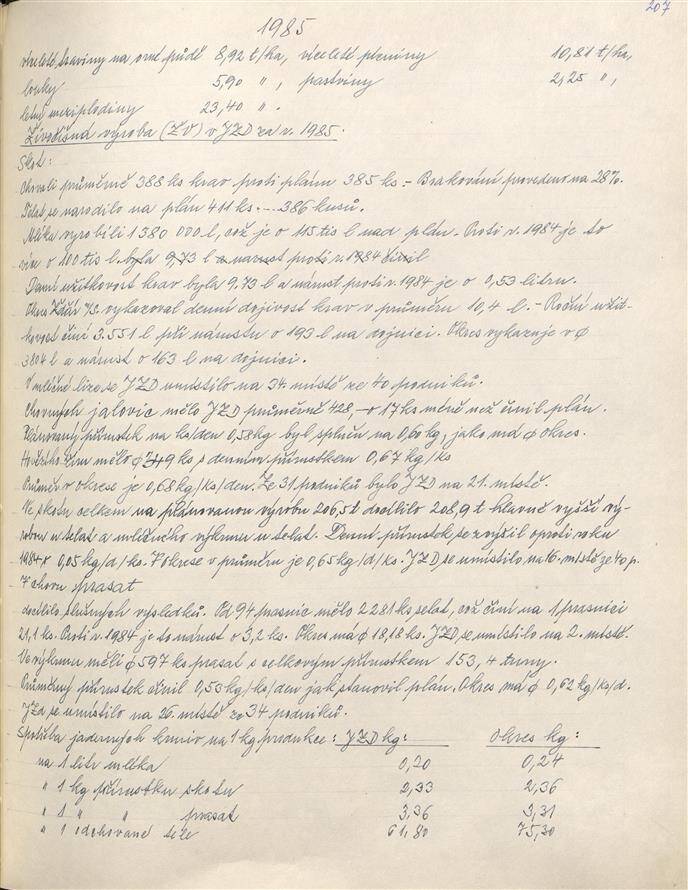 207
1985
víceleté traviny na orné půdě 8,92 t/ha, víceleté pícniny 10,81 t/ha,
louky 5,90 ", pastviny 2,25 ",
letní meziplodiny 23,40 ".
Živočišná výroba (ŽV) v JZD za r. 1985.
Skot:
Chovali průměrně 388 ks krav proti plánu 385 ks. - Brakování provedeno na 28%.
Telat se narodilo na plán 411 ks. - 386 kusů.
Mléka vyrobili 1380 000 l, což je o 115 tis l nad plán. Proti r. 1984 je to
více o 100 tis l. byla 9,73 l a nárůst proti r. 1984 činil
Denní užitkovost krav byla 9,73 l a nárůst proti r. 1984 je o 0,53 litru.
Okres Žďár n/S. vykazoval denní dojivost krav v průměru 10,4 l. - Roční užit-
kovost činí 3.551 l při nárustu o 193 l na dojnici. Okres vykazuje v ϕ
3804 l a nárust o 163 l na dojnici.
V mléčné lize se JZD umístilo na 34. místě ze 40 podniků.
Chovných jalovic mělo JZD průměrně 428, - o 17 ks méně než činil plán.
Plánovaný přírustek na ks/den 0,58 kg byl splněn na 0,60 kg, jako má ϕ okres.
žíru mělo ϕ 9 ks, s denním přírustkem 0,67 kg/ks
Průměr v okrese je 0,68 kg/ks/den. Ze 31 podniků bylo JZD na 21. místě.
Ve skotu celkem na plánovanou výrobu 206,5 t docílilo 208,9 t hlavně vyšší vý-
robou u telat a mléčného výkrmu u telat. Denní přírustek se zvýšil oproti roku
1984 o 0,05 kg/d/ks. V okrese v průměru je 0,65 kg/d/ks. JZD se umístilo na 16. místě ze 40 p.
V chovu prasat
docílilo slušných výsledků. Od 94 prasnic mělo 2281 ks selat, což činí na 1 prasnici
21,1 ks. Proti r. 1984 je to nárust o 3,2 ks. Okres má ϕ 18,18 ks. JZD se umístilo na 2. místě.
Ve výkrmu měli ϕ 597 ks prasat s celkovým přírustkem 153,4 tuny.
Průměrný přírustek činil 0,53 kg/ks/den jak stanovil plán. Okres má ϕ 0,62 kg/ks/d.
JZD se umístilo na 26. místě ze 34 podniků.
Spotřeba jaderných krmiv na 1 kg produkce: JZD kg: Okres kg:
na 1 litr mléka 0,20 0,24
" 1 kg přírustku skotu 2,33 2,36
" 1 " " prasat 3,36 3,31
" 1 odchované sele 61,80 75,30